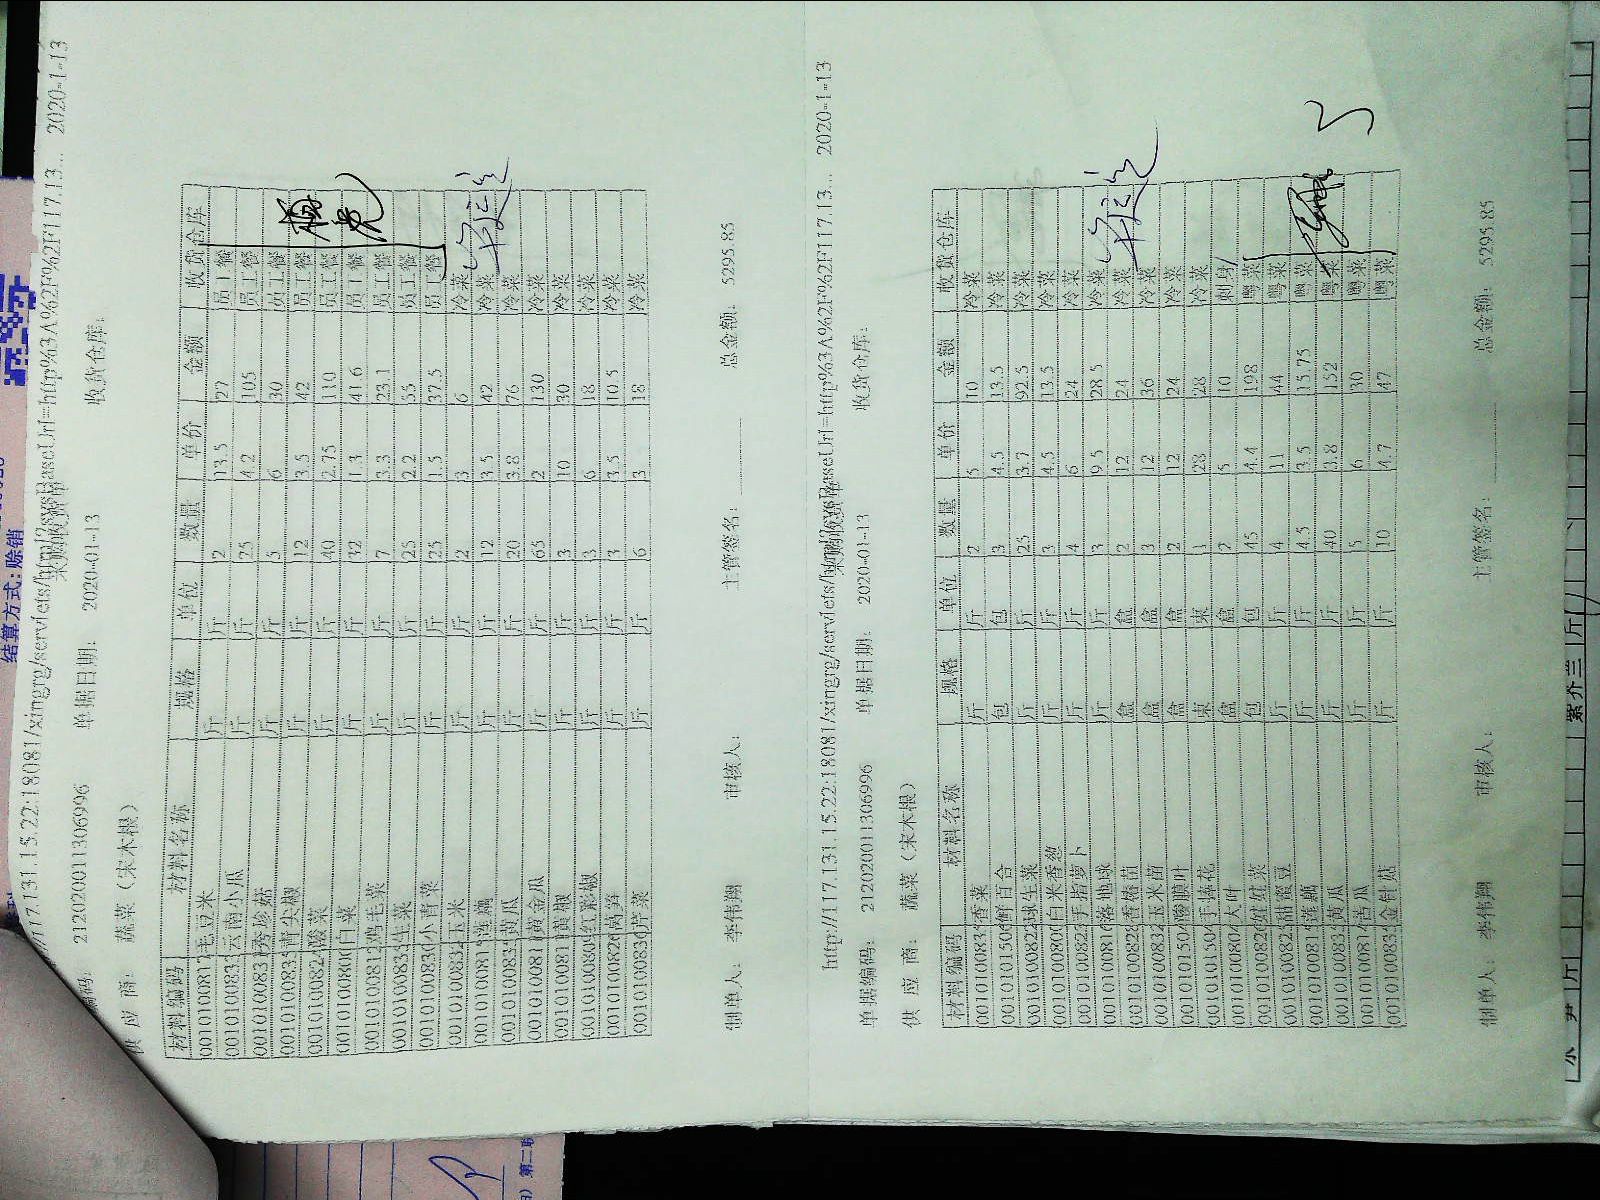 http://117.131.15.22:18081/xingrg/servlets/html?sysBaseUrl=http%3A%2F%2F117.13... 2020-1-13
采购收货单
编码: 2120200113069​96 单据日期: 2020-01-13 收货仓库:
供 应 商: 蔬菜（宋木根）
材料编码 材料名称 规格 单位 数量 单价 金额 收货仓库
0010100817 毛豆米 斤 斤 2 13.5 27 员工餐
001010083 云南小瓜 斤 斤 25 4.2 105 员工餐
001010083 秀珍菇 斤 斤 5 6 30 员工餐
001010083 青尖椒 斤 斤 12 3.5 42 员工餐
0010100824 酸菜 斤 斤 40 2.75 110 员工餐
001010080 白菜 斤 斤 32 1.3 41.6 员工餐
001010081 鸡毛菜 斤 斤 7 3.3 23.1 员工餐
001010083 生菜 斤 斤 25 2.2 55 员工餐
001010083 小青菜 斤 斤 25 1.5 37.5 员工餐
001010083 玉米 斤 斤 2 3 6 冷菜
001010081 莲藕 斤 斤 12 3.5 42 冷菜
001010083 黄瓜 斤 斤 20 3.8 76 冷菜
001010081 黄金瓜 斤 斤 65 2 130 冷菜
001010081 黄椒 斤 斤 3 10 30 冷菜
001010080 红彩椒 斤 斤 3 6 18 冷菜
001010082 莴笋 斤 斤 3 3.5 10.5 冷菜
001010083 芹菜 斤 斤 6 3 18 冷菜
制单人: 李伟翔 审核人: 主管签名: 总金额: 5295.85
http://117.131.15.22:18081/xingrg/servlets/html?sysBaseUrl=http%3A%2F%2F117.13... 2020-1-13
采购收货单
单据编码: 212020011306996 单据日期: 2020-01-13 收货仓库:
供 应 商: 蔬菜（宋木根）
材料编码 材料名称 规格 单位 数量 单价 金额 收货仓库
001010083 香菜 斤 斤 2 5 10 冷菜
001010150 鲜百合 包 包 3 4.5 13.5 冷菜
001010082 球生菜 斤 斤 25 3.7 92.5 冷菜
001010080 白米香葱 斤 斤 3 4.5 13.5 冷菜
001010082 手指萝卜 斤 斤 4 6 24 冷菜
001010081 落地球 斤 斤 3 9.5 28.5 冷菜
001010082 香椿苗 盒 盒 2 12 24 冷菜
001010083 玉米苗 盒 盒 3 12 36 冷菜
001010150 酸膜叶 盒 盒 2 12 24 冷菜
001010130 手捧花 束 束 1 28 28 冷菜
001010080 大叶 盒 盒 2 5 10 刺身
001010082 娃娃菜 包 包 45 4.4 198 粤菜
001010082 甜蜜豆 斤 斤 4 11 44 粤菜
001010081 莲藕 斤 斤 4.5 3.5 15.75 粤菜
001010083 黄瓜 斤 斤 40 3.8 152 粤菜
001010081 苦瓜 斤 斤 5 6 30 粤菜
001010083 金针菇 斤 斤 10 4.7 47 粤菜
制单人: 李伟翔 审核人: 主管签名: 总金额: 5295.85
结算方式: 赊销
紫乔兰 斤